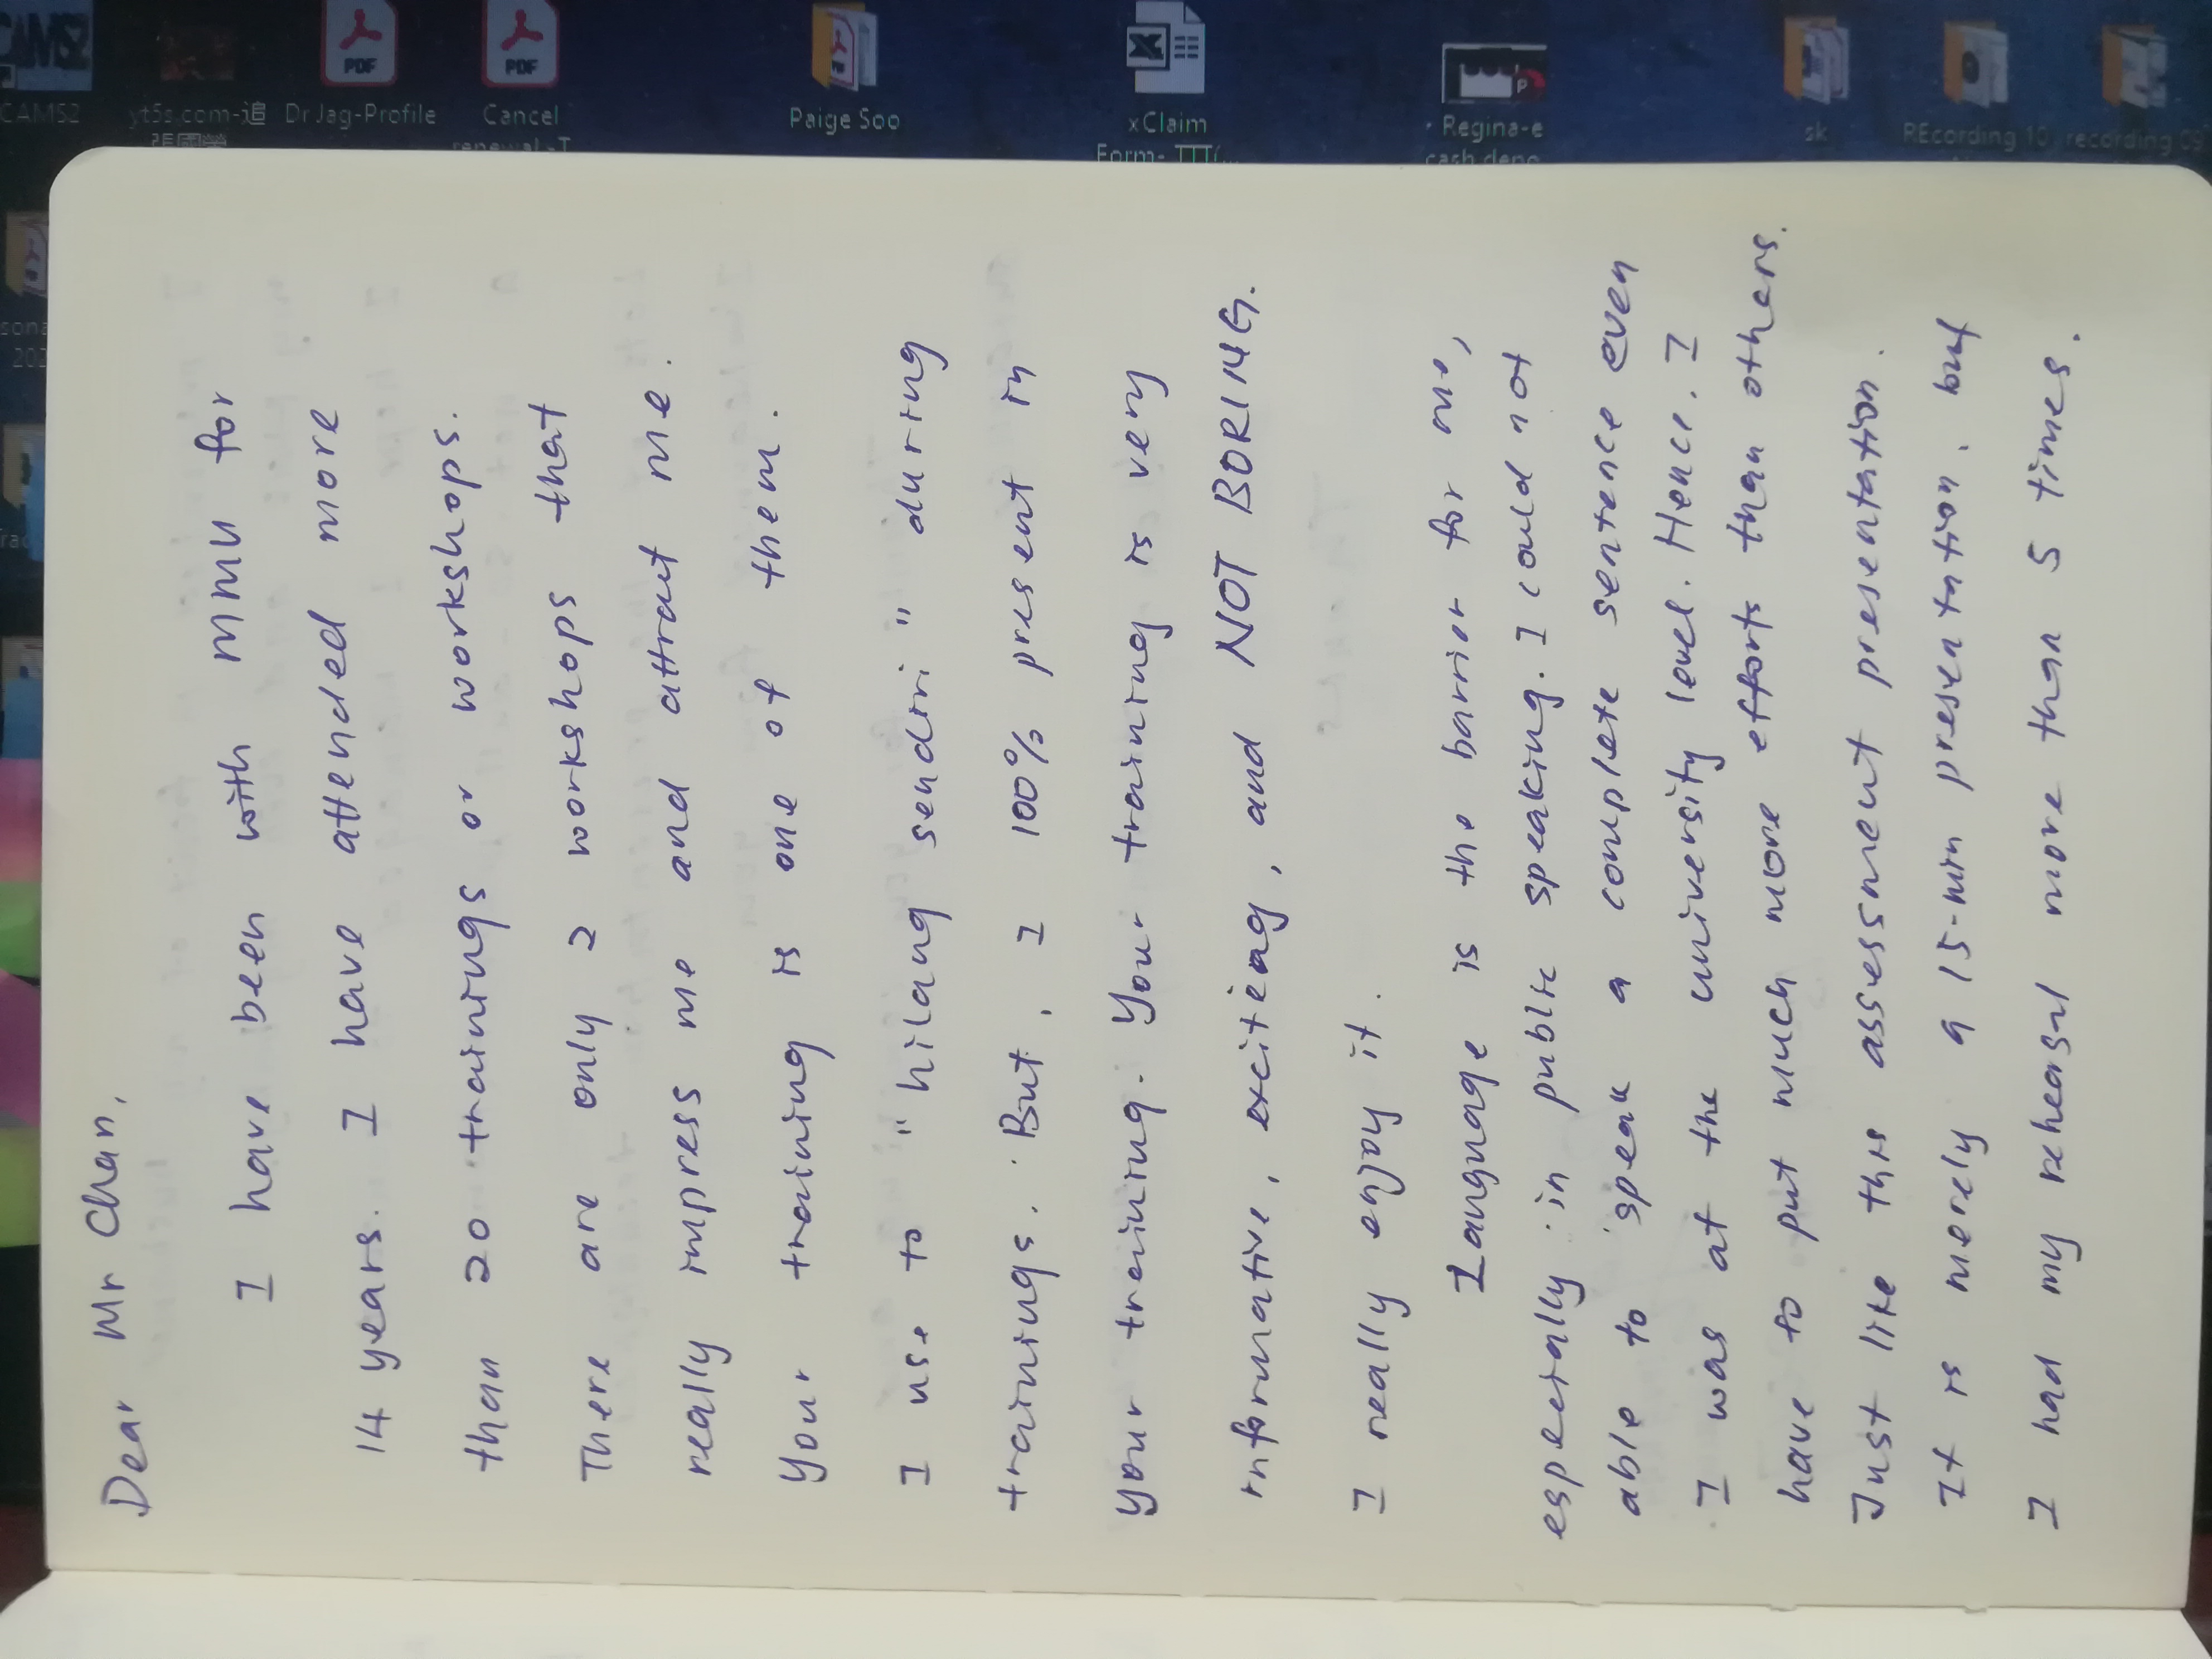 CAMS2
yt5s.com-追
張國榮
Dr Jag-Profile
PDF
Cancel
PDF
Paige Soo
xClaim
Form- TTT(...
Regina-e
cash depo
sk
REcording 10
recording 09
sona
202
Dear Mr Chan,
I have been with MMU for
14 years. I have attended more
than 20 trainings or workshops.
There are only 2 workshops that
really impress me and attract me.
Your training is one of them.
I use to "hilang sendiri" during
trainings. But, I 100% present in
your training. Your training is very
informative, exciteing, and NOT BORING.
I really enjoy it.
Language is the barrior for me,
especially in public speaking. I could not
able to speak a complete sentence even
I was at the university level. Hence, I
have to put much more efforts than others.
Just like this assessment presentation.
It is merely a 15-min presentation, but
I had my rehearsal more than 5 times.